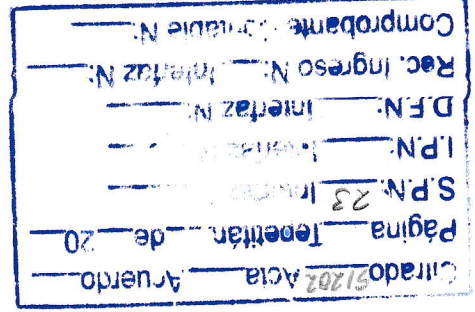 Citrado 51202 Acta ____ Acuerdo ____
Página ____ Tepetitán, ____ de ____ 20 ____
S.P.N: 23 ____ Interfaz ____
I.P.N: ____ Interfaz N: ____
D.F.N: ____ Interfaz N: ____
Rec. Ingreso N: ____ Interfaz N: ____
Comprobante Contable N: ____